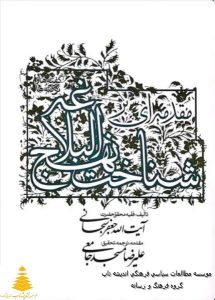 مقدمه‌ای بر
شناخت نهج البلاغه
تألیف: فقیه محقق حضرت
آیت الله جعفر سبحانی
مقدمه، ترجمه و تحقیق
علیرضا سجد جامعی
موسسه مطالعات سیاسی فرهنگی اندیشه ناب
گروه فرهنگ و رسانه